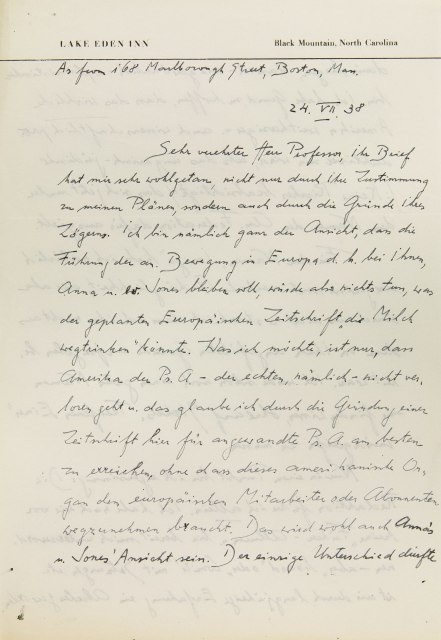 LAKE EDEN INN
Black Mountain, North Carolina
As from 168 Marlborough Street, Boston, Mass.
24. VII. 38
Sehr verehrter Herr Professor, Ihr Brief
hat mir sehr wohlgetan, nicht nur durch Ihre Zustimmung
zu meinen Plänen, sondern auch durch die Gründe Ihres
Zögerns. Ich bin nämlich ganz der Ansicht, dass die
Führung der an. Bewegung in Europa d. h. bei Ihnen,
Anna u. Jones bleiben soll, würde also nichts tun, was
der geplanten Europäischen Zeitschrift „die Milch
wegtrinken" könnte. Was ich möchte, ist nur, dass
Amerika der Ps. A. – der echten, nämlich – nicht ver-
loren geht u. das glaube ich durch die Gründung einer
Zeitschrift hier für angewandte Ps. A. am besten
zu erreichen, ohne dass dieses amerikanische Or-
gan den europäischen Mitarbeiter oder Abonnenten
wegzunehmen braucht. Das wird wohl auch Anna's
u. Jones' Ansicht sein. Der einzige Unterschied dürfte